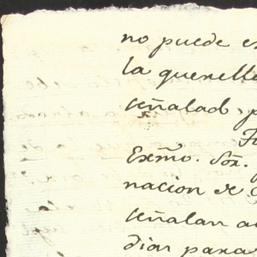 no puede e
la querell
señalad. p
Exmo. Sor.
nacion de
señalan a
dias para